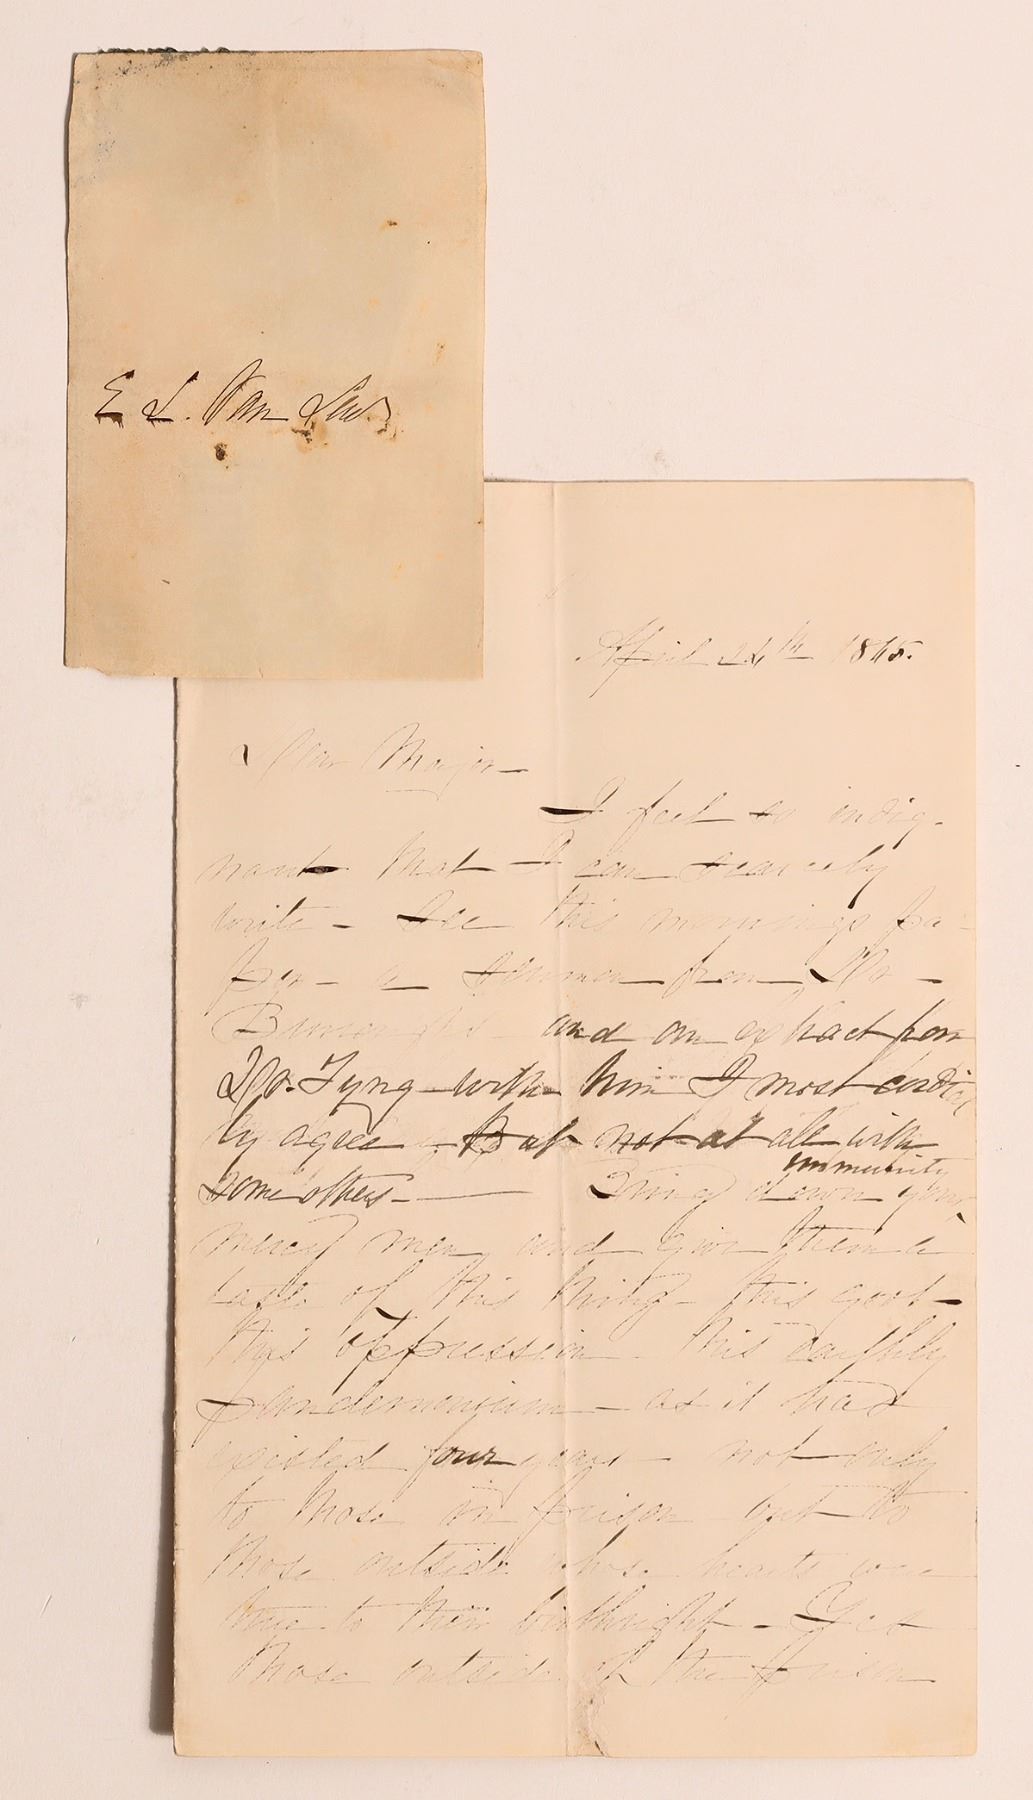 E L. Van Lew.
April 24th 1865.
Dear Major -
I feel so indig-
nant that I can scarcely
write - See this mornings pa-
per - a sermon from Dr -
and an extract from
Dr. Tyng - with him I most cordial
ly agree. But not at all with
some others - Bring down your
community
mercy men, and give them a
taste of this thing - this
this oppression - this earthly
pandemonium - as it has
existed four years - not only
to those in prison but to
those outside whose hearts were
true to their birthright - Yes
those outside of the prison